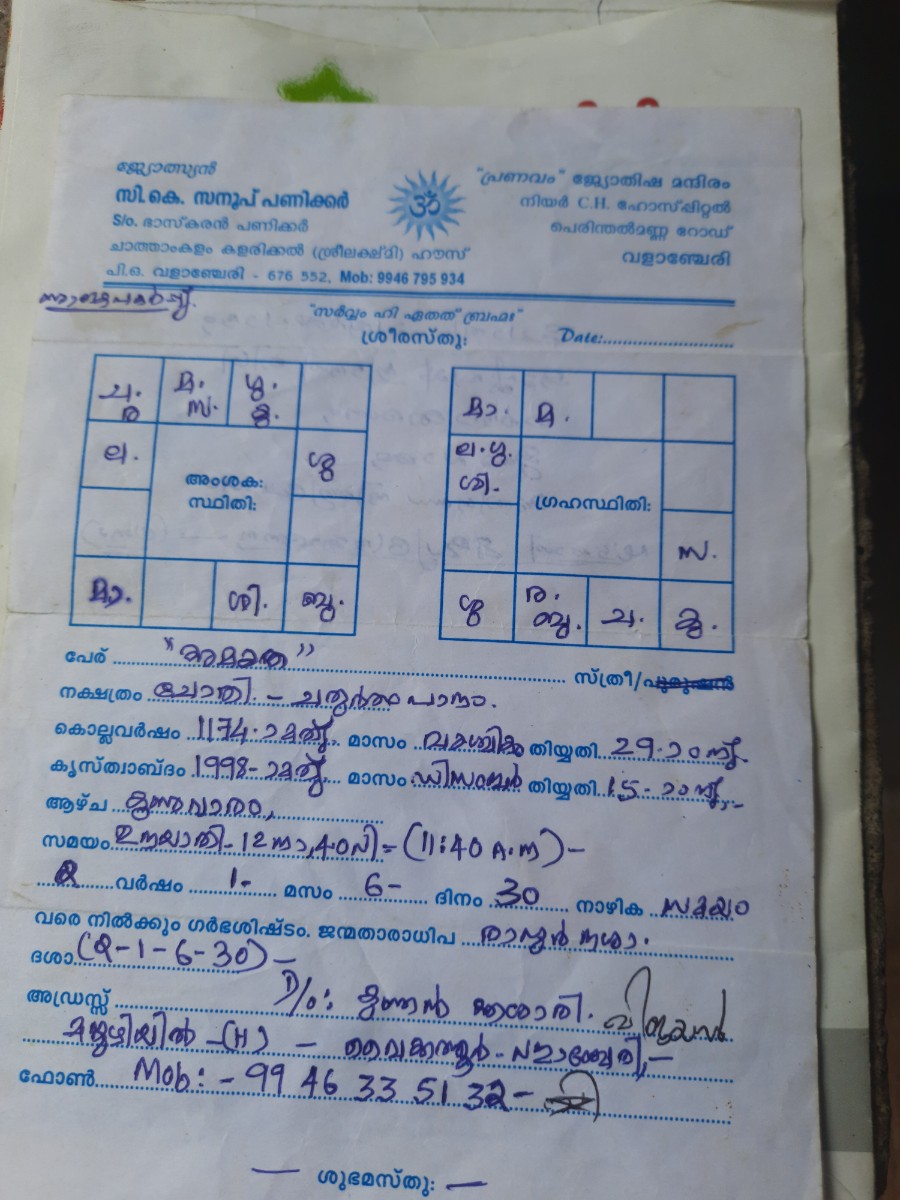 ജ്യോത്സ്യൻ
സി.കെ. സനൂപ് പണിക്കർ
S/o. ഭാസ്കരൻ പണിക്കർ
ചാത്താംകളം കളരിക്കൽ (ശ്രീലക്ഷ്മി) ഹൗസ്
പി.ഒ. വളാഞ്ചേരി - 676 552, Mob: 9946 795 934
ഓം
"പ്രണവം" ജ്യോതിഷ മന്ദിരം
നിയർ C.H. ഹോസ്പിറ്റൽ
പെരിന്തൽമണ്ണ റോഡ്
വളാഞ്ചേരി
"സർവ്വം ഹി ഏതത് ബ്രഹ്മഃ"
ശ്രീരസ്തു: Date:
ച. ര
മ. സ.
ഗു. കു.
ല.
ശു
അംശക:
സ്ഥിതി:
മാ.
ശി.
ബു.
മാ. മ.
ല.ഗു.
ശി.
ഗ്രഹസ്ഥിതി:
സ.
ശു
ര.
ബു. ച. കു.
പേര് സ്ത്രീ/പുരുഷൻ
നക്ഷത്രം ചോതി - ചതുർത്ഥ പാദം.
കൊല്ലവർഷം 1174-ാമത് മാസം വൃശ്ചികം തിയ്യതി 29-ാംനു
കൃസ്ത്വാബ്ദം 1998-ാമത് മാസം ഡിസംബർ തിയ്യതി 15-ാംനു
ആഴ്ച
സമയം 12 40 (11:40 A.M) -
2 വർഷം 1- മസം 6- ദിനം 30 നാഴിക സമയം
വരെ നിൽക്കും ഗർഭശിഷ്ടം. ജന്മതാരാധിപ രാഹുർ ദശാ.
ദശാ (2-1-6-30) -
അഡ്രസ്സ് D/o:
(H) -
ഫോൺ Mob: - 99 46 33 51 32 -
— ശുഭമസ്തു: —